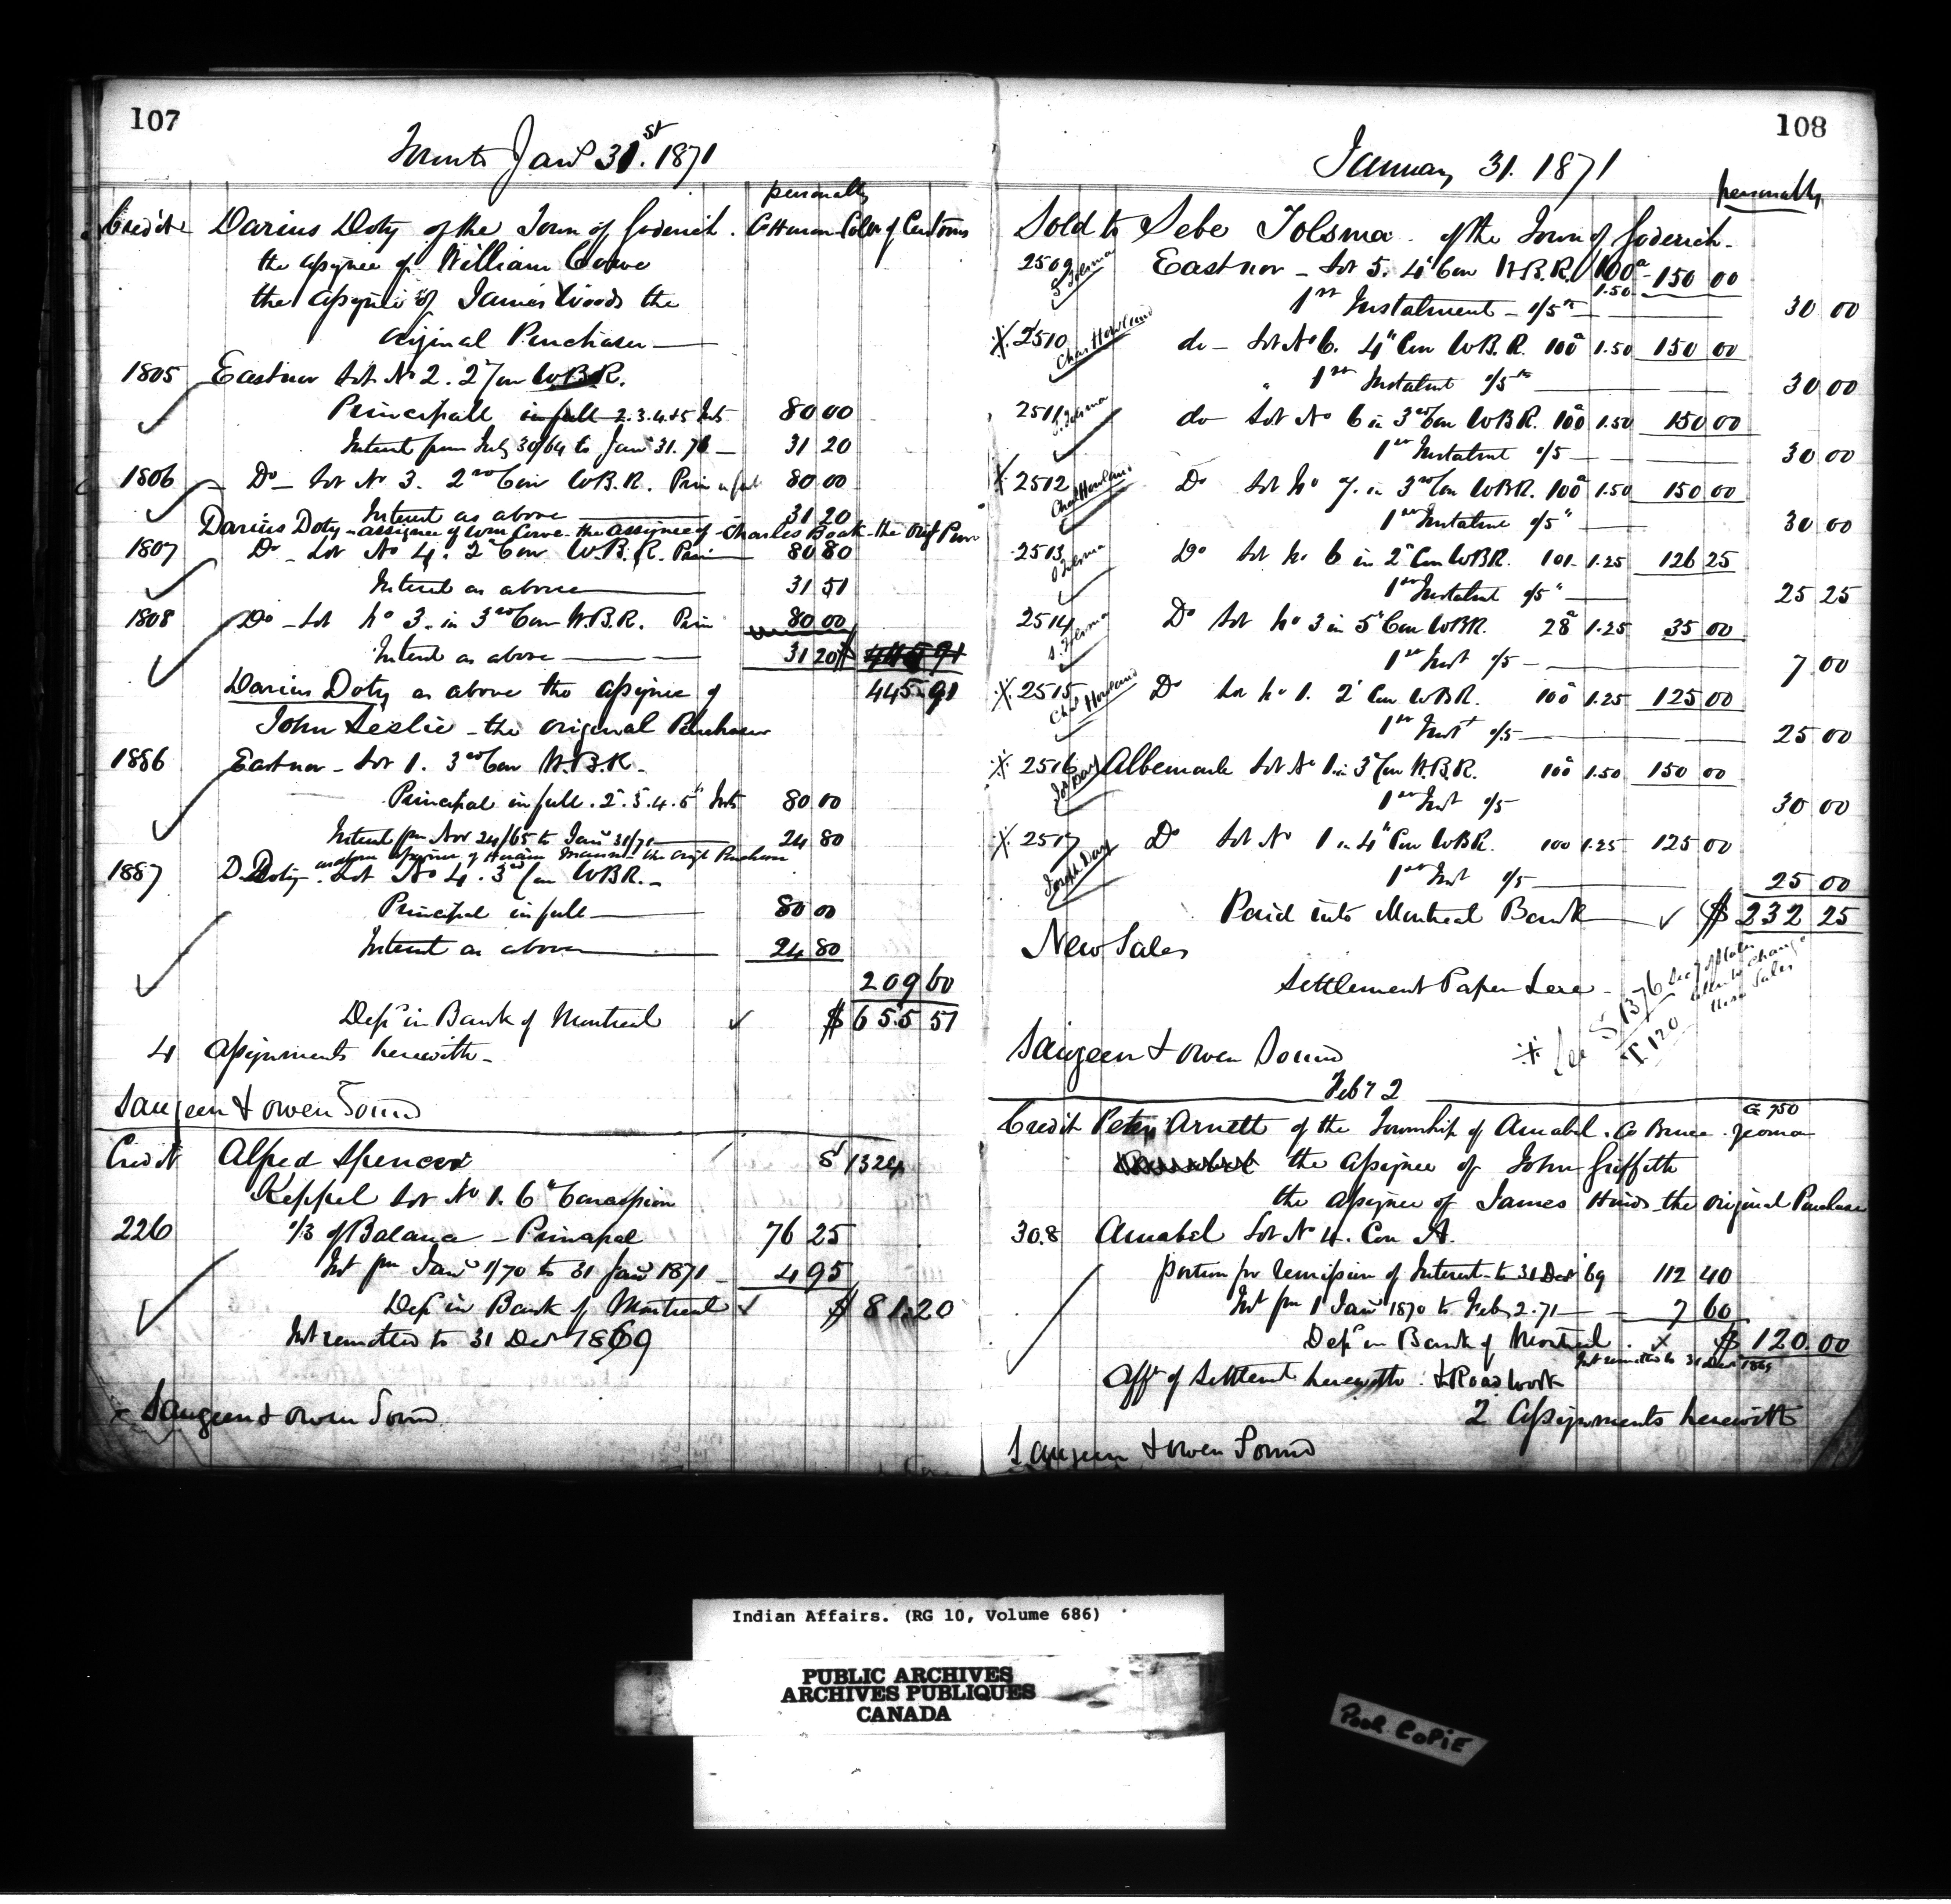 107
Toronto Jany 31st. 1871
personally
Credit Darius Doty of the Town of Goderich. Colr of Customs
the assignee of William Cowe
the assignee of James Woods the
original Purchaser
1805 Eastnor Lot No 2. 2d Con W.B.R.
Principall in full 2.3.4.&5 Ints 80 00
Interest from July 30/64 to Jany 31. 71 31 20
1806 Do - Lot No 3. 2nd Con W.B.R. Prin in full 80 00
Interest as above 31 20
Darius Doty - assignee of Wm Cowe - the assignee of - Charles Book - the Orig Pur
1807 Do - Lot No 4. 2d Con W.B.R. Prin 80 80
Interest as above 31 51
1808 Do - Lot No 3. in 3rd Con W.B.R. Prin 80 00
Interest as above 31 20 $ 445 91
Darius Doty as above the assignee of 445.91
John Leslie - the original Purchaser
1886 Eastnor - Lot 1. 3rd Con W.B.R.
Principal in full. 2.3.4.5th Ints 80 00
Interest from Nov 24/65 to Jany 31/71 24 80
as above assignee of Hiram the origl Purchaser
1887 D. Doty. Lot No 4. 3rd Con WBR.
Principal in full 80 00
Interest as above 24 80
209 60
Depd in Bank of Montreal $ 655 51
4 assignments herewith
Saugeen & Owen Sound
Credit Alfred Spencer S 1324
Keppel Lot No 1. 6th Concession
226 1/3 of Balance - Principal 76 25
Int from Jany 1/70 to 31 Jany 1871 4 95
Depd in Bank of Montreal $ 81.20
Int remitted to 31 Decr 1869
Saugeen & Owen Sound
108
January 31. 1871
personally
Sold to Sebe Tolsma of the Town of Goderich
2509 S Tolsma Eastnor - Lot 5. 4th Con W.B.R. 100a 1.50 150 00
1st Instalment - 1/5th 30 00
2510 Chas Howland do - Lot No 6. 4th Con W.B.R. 100a 1.50 150 00
" 1st Instalmt 1/5th 30 00
2511 S. Tolsma do Lot No 6 in 3rd Con WBR. 100a 1.50 150 00
1st Instalmt 1/5 30 00
2512 Chas Howland Do Lot No 7. in 3rd Con WBR. 100a 1.50 150 00
1st Instalmt 1/5" 30 00
2513 S Tolsma Do Lot No 6 in 2d Con WBR. 101 1.25 126 25
1st Instalmt 1/5" 25 25
2514 S. Tolsma Do Lot No 3 in 5th Con WBR. 28a 1.25 35 00
1st Inst 1/5 7.00
2515 Chas Howland Do Lot No 1. 2d Con WBR. 100a 1.25 125 00
1st Inst 1/5 25 00
2516 Jos Day Albemarle Lot No 1 in 3d Con W.B.R. 100a 1.50 150 00
1st Inst 1/5 30 00
2517 Joseph Day Do Lot No 1 in 4th Con WBR. 100 1.25 125 00
1st Inst 1/5 25 00
Paid into Montreal Bank $ 232 25
New Sales
Settlement Paper Here
See S 1376
T. 120
these Sales
Saugeen & Owen Sound
Feby 2
G 750
Credit Peter Arnett of the Township of Amabel. Co Bruce. yeoman
the assignee of John Griffith
the assignee of James Hinds - the original Purchaser
308 Amabel Lot No 4. Con A.
portion for remission of Interest to 31 Decr 69 112 40
Int from 1 Jany 1870 to Feby 2. 71 7 60
Depd in Bank of Montreal. x $ 120.00
Int remitted to 31 Decr 1869
Afft of Settlemt herewith. & Road work
2 Assignments herewith
Saugeen & Owen Sound
Indian Affairs. (RG 10, Volume 686)
PUBLIC ARCHIVES
ARCHIVES PUBLIQUES
CANADA
POOR COPIE